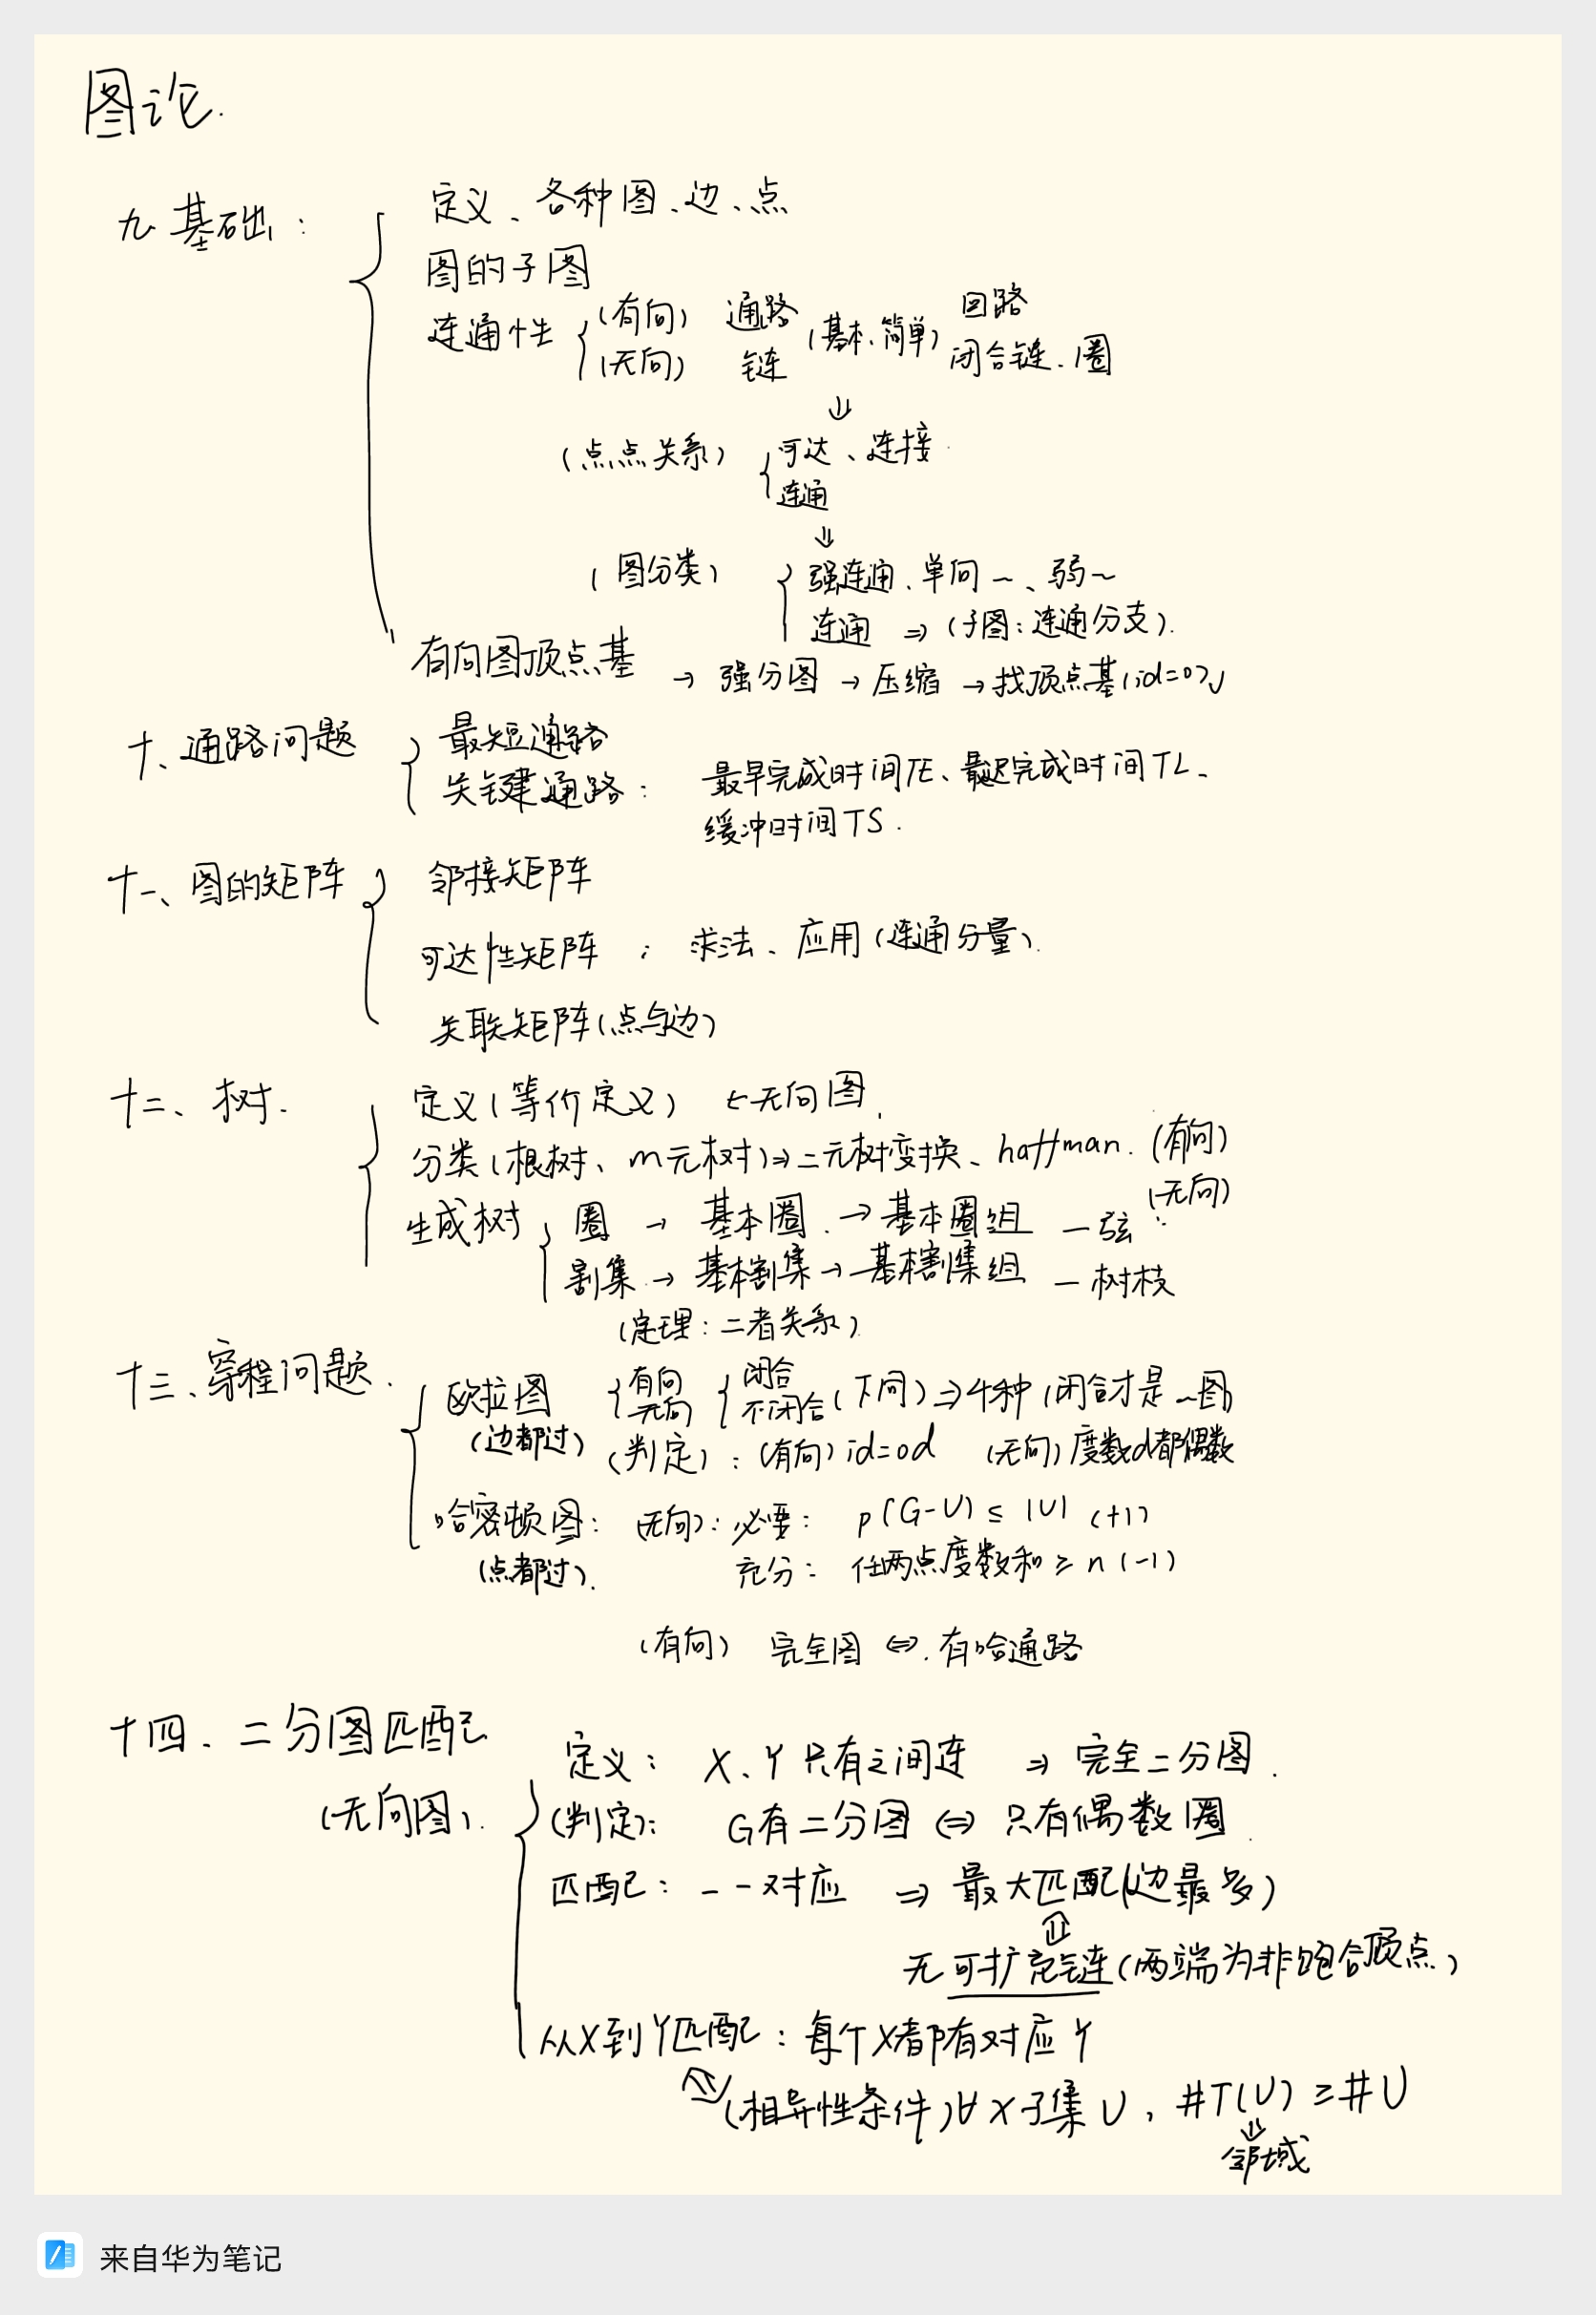 图论.
九 基础：
定义、各种图、边、点
图的子图
连通性 (有向) 通路 (基本、简单) 回路
(无向) 链 闭合链、圈
⇓
(点点关系) 可达、连接
连通
⇓
(图分类) 强连通、单向~、弱~
连通 ⇒ (子图：连通分支).
有向图顶点基 → 强分图 → 压缩 → 找顶点基(id=0)
十、通路问题 最短通路
关键通路： 最早完成时间TE、最迟完成时间TL、
缓冲时间TS.
十一、图的矩阵 邻接矩阵
可达性矩阵 ： 求法、应用(连通分量).
关联矩阵(点与边)
十二、树. 定义(等价定义) ← 无向图
分类(根树、m元树)⇒二元树变换、haffman. (有向)
(无向)
生成树 圈 → 基本圈 → 基本圈组 — 弦
割集 → 基本割集 → 基本割集组 — 树枝
(定理：二者关系)
十三、穿程问题.
欧拉图 有向 闭合
无向 不闭合 (下同) ⇒ 4种 (闭合才是~图)
(边都过) (判定)：(有向) id=od (无向) 度数d都偶数
哈密顿图： (无向)：必要： p(G-U) ≤ |U| (+1)
(点都过). 充分： 任两点度数和 ≥ n (-1)
(有向) 完全图 ⇔ 有哈通路
十四、二分图匹配
(无向图).
定义： X、Y 只有之间连 ⇒ 完全二分图.
(判定)： G有二分图 ⇔ 只有偶数圈.
匹配： 一一对应 ⇒ 最大匹配(边最多)
⇕
无可扩充链(两端为非饱合顶点)
从X到Y匹配：每个X都有对应Y
⇕
(相异性条件)∀X子集U，#T(U) ≥ #U
⇓
邻域
来自华为笔记